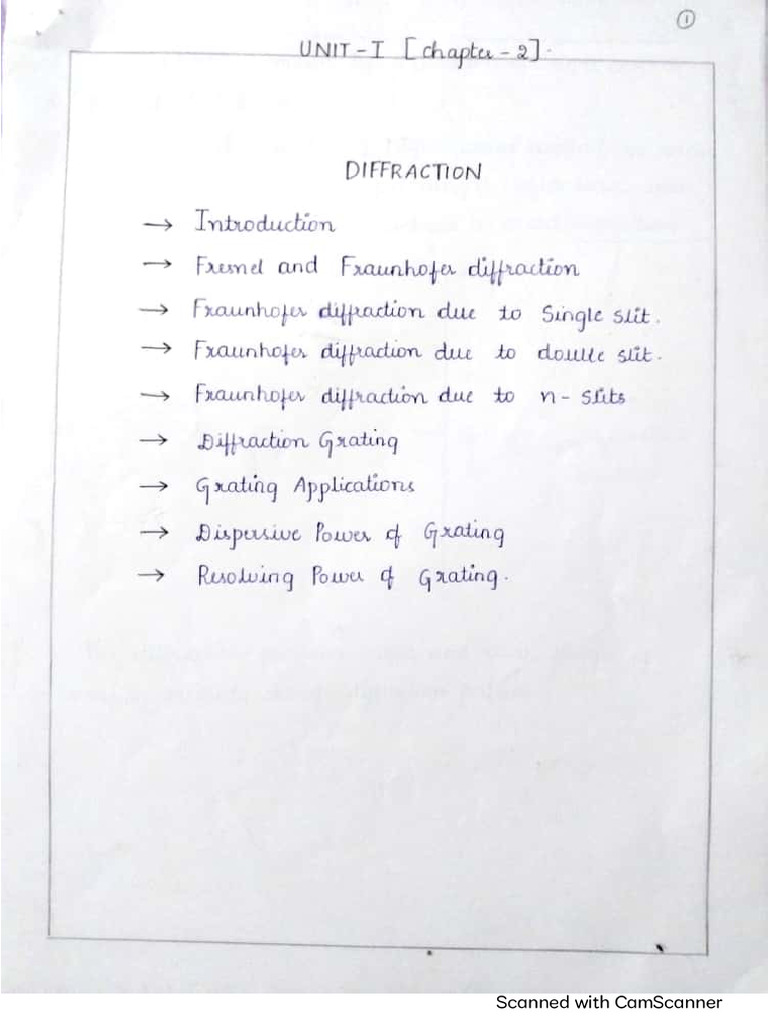 ①
UNIT-I [chapter-2].
DIFFRACTION
→ Introduction
→ Fresnel and Fraunhofer diffraction
→ Fraunhofer diffraction due to Single slit.
→ Fraunhofer diffraction due to double slit.
→ Fraunhofer diffraction due to n-slits
→ Diffraction Grating
→ Grating Applications
→ Dispersive Power of Grating
→ Resolving Power of Grating.
Scanned with CamScanner